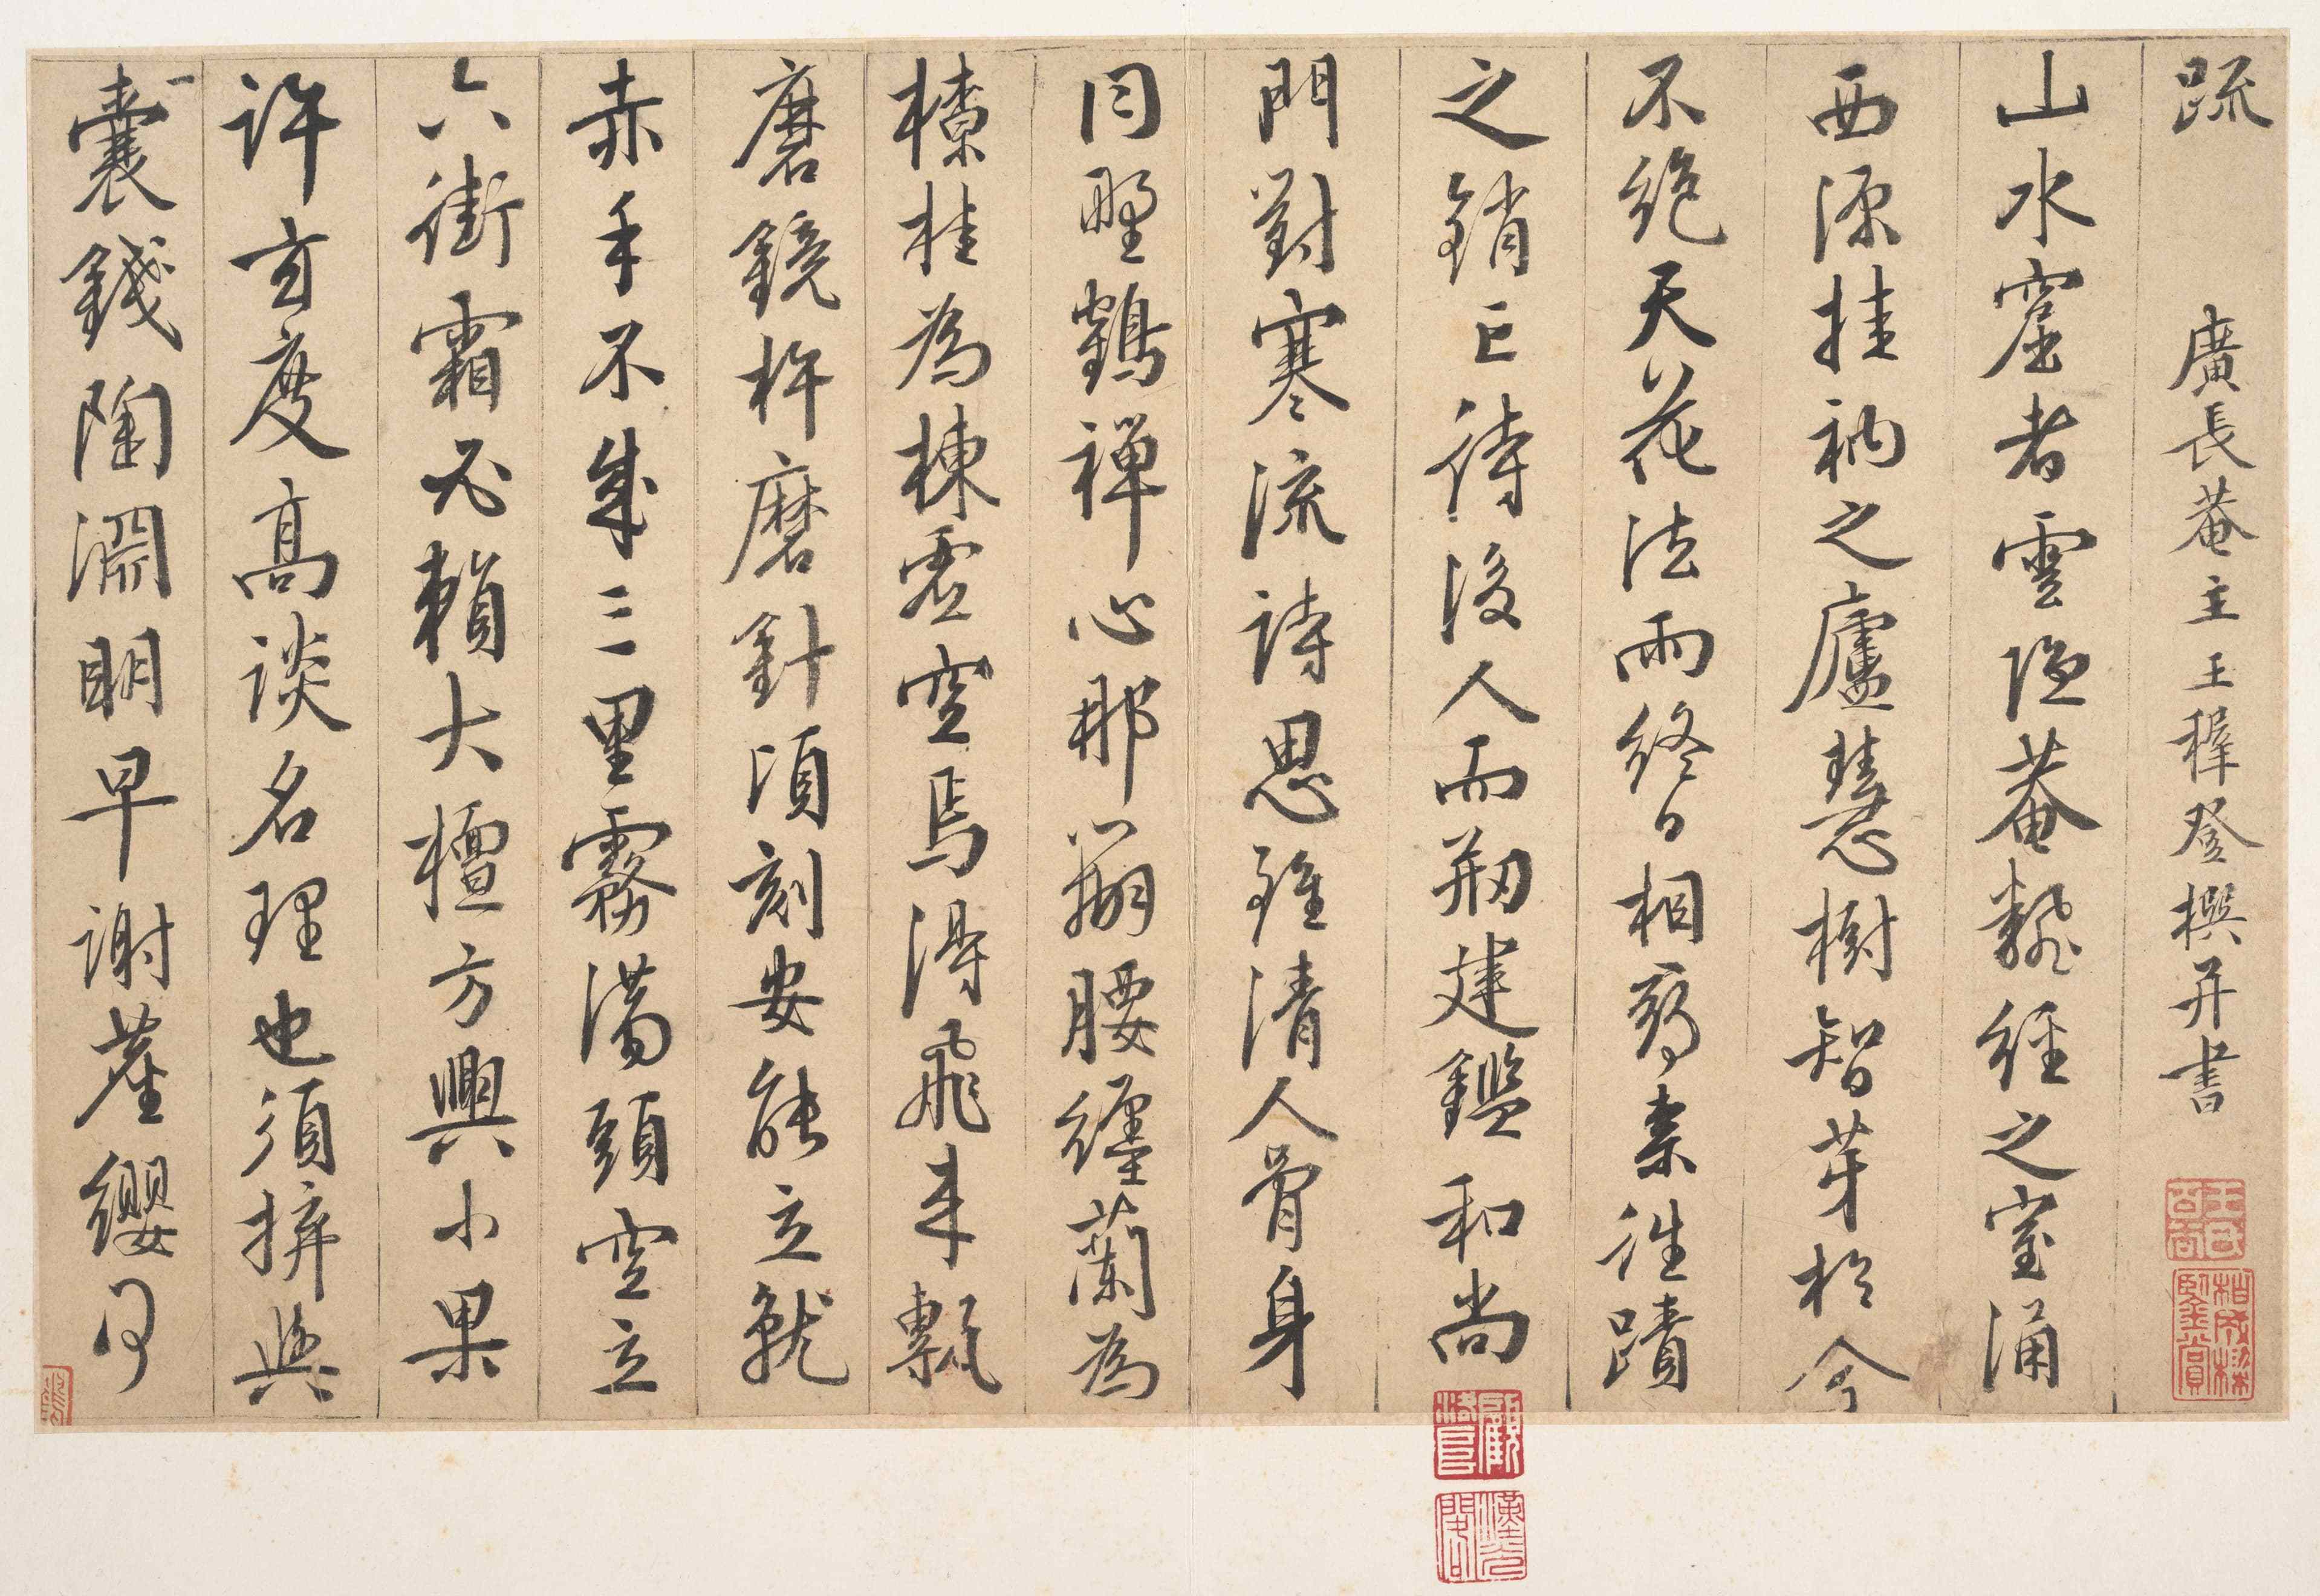 疏　廣長菴主王穉登撰并書
山水窟者雲隱菴飜經之室涌
西源挂衲之廬慧樹智芽於今
不絕天花法雨終日相柰往蹟
之銷亡待後人而剏建鑑和尚
門對寒流詩思雖清人骨身
同野鶴禪心那腰纏蘭為
橑桂為棟虛空焉得飛來甎
磨鏡杵磨針頃刻安能立就
赤手不成三里霧滿頭空立
六街霜必賴大檀方興小果
許玄度高談名理也須拚與
一囊錢陶淵明早謝塵纓何
顧洛阜
漢光閣